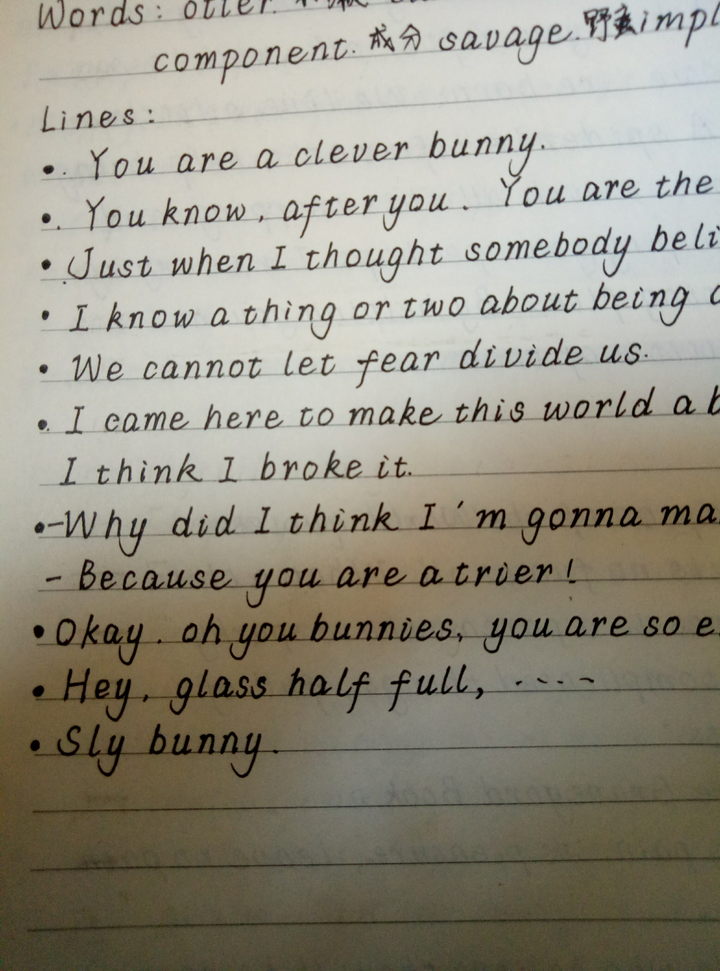 Words: otter.
component. 成分 savage. 野蛮 impl
Lines:
• You are a clever bunny.
• You know, after you. You are the
• Just when I thought somebody beli
• I know a thing or two about being
• We cannot let fear divide us.
• I came here to make this world a b
I think I broke it.
•-Why did I think I'm gonna ma
- Because you are a trier!
• Okay. oh you bunnies, you are so e
• Hey, glass half full, ····-
• Sly bunny.